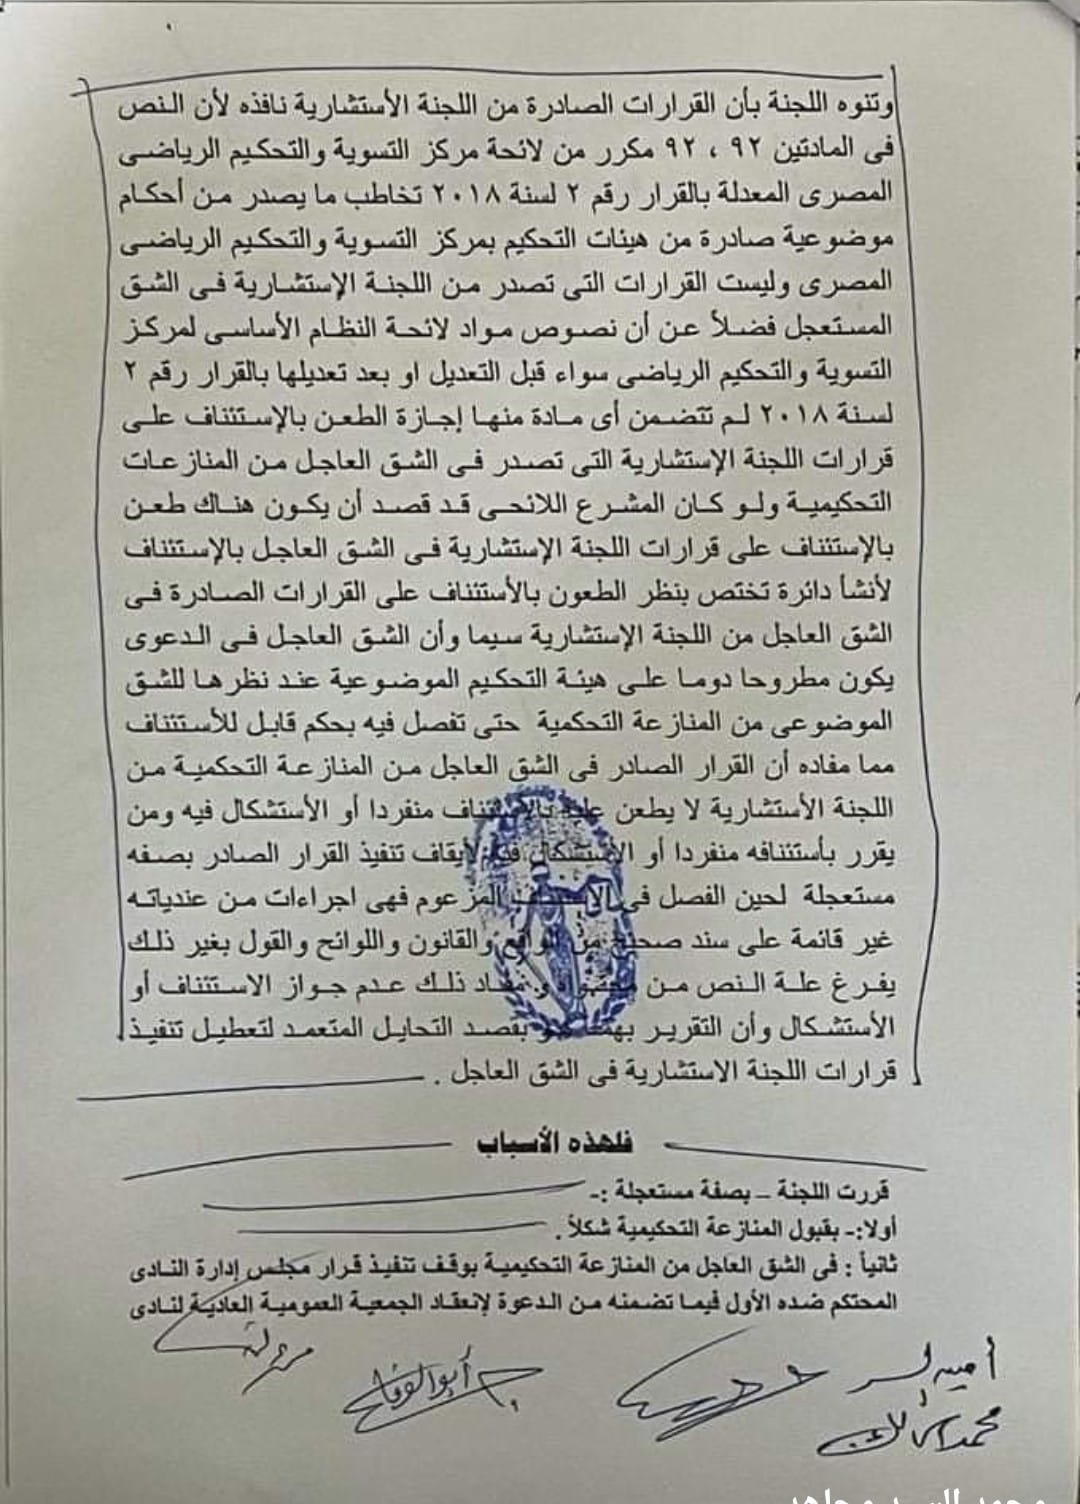 وتنوه اللجنة بأن القرارات الصادرة من اللجنة الأستشارية نافذه لأن النص
فى المادتين ٩٢ ، ٩٢ مكرر من لائحة مركز التسوية والتحكيم الرياضى
المصرى المعدلة بالقرار رقم ٢ لسنة ٢٠١٨ تخاطب ما يصدر من أحكام
موضوعية صادرة من هيئات التحكيم بمركز التسوية والتحكيم الرياضى
المصرى وليست القرارات التى تصدر من اللجنة الإستشارية فى الشق
المستعجل فضلاً عن أن نصوص مواد لائحة النظام الأساسى لمركز
التسوية والتحكيم الرياضى سواء قبل التعديل او بعد تعديلها بالقرار رقم ٢
لسنة ٢٠١٨ لم تتضمن أى مادة منها إجازة الطعن بالإستئناف على
قرارات اللجنة الإستشارية التى تصدر فى الشق العاجل من المنازعات
التحكيمية ولو كان المشرع اللائحى قد قصد أن يكون هناك طعن
بالإستئناف على قرارات اللجنة الإستشارية فى الشق العاجل بالإستئناف
لأنشأ دائرة تختص بنظر الطعون بالأستئناف على القرارات الصادرة فى
الشق العاجل من اللجنة الإستشارية سيما وأن الشق العاجل فى الدعوى
يكون مطروحا دوما على هيئة التحكيم الموضوعية عند نظرها للشق
الموضوعى من المنازعة التحكمية حتى تفصل فيه بحكم قابل للأستئناف
مما مفاده أن القرار الصادر فى الشق العاجل من المنازعة التحكمية من
اللجنة الأستشارية لا يطعن عليه بالأستئناف منفردا أو الأستشكال فيه ومن
يقرر بأستئنافه منفردا أو الأستشكال فيه لأيقاف تنفيذ القرار الصادر بصفه
مستعجلة لحين الفصل فى الاستئناف المزعوم فهى اجراءات من عندياته
غير قائمة على سند صحيح من الواقع والقانون واللوائح والقول بغير ذلك
يفرغ علة النص من و مفاد ذلك عدم جواز الاستئناف أو
الأستشكال وأن التقرير بهما هو بقصد التحايل المتعمد لتعطيل تنفيذ
قرارات اللجنة الاستشارية فى الشق العاجل .
فلهذه الأسباب
قررت اللجنة – بصفة مستعجلة :-
أولا:- بقبول المنازعة التحكيمية شكلاً .
ثانياً : فى الشق العاجل من المنازعة التحكيمية بوقف تنفيذ قرار مجلس إدارة النادى
المحتكم ضده الأول فيما تضمنه من الدعوة لإنعقاد الجمعية العمومية العادية لنادى
أبو الوفا
محمد